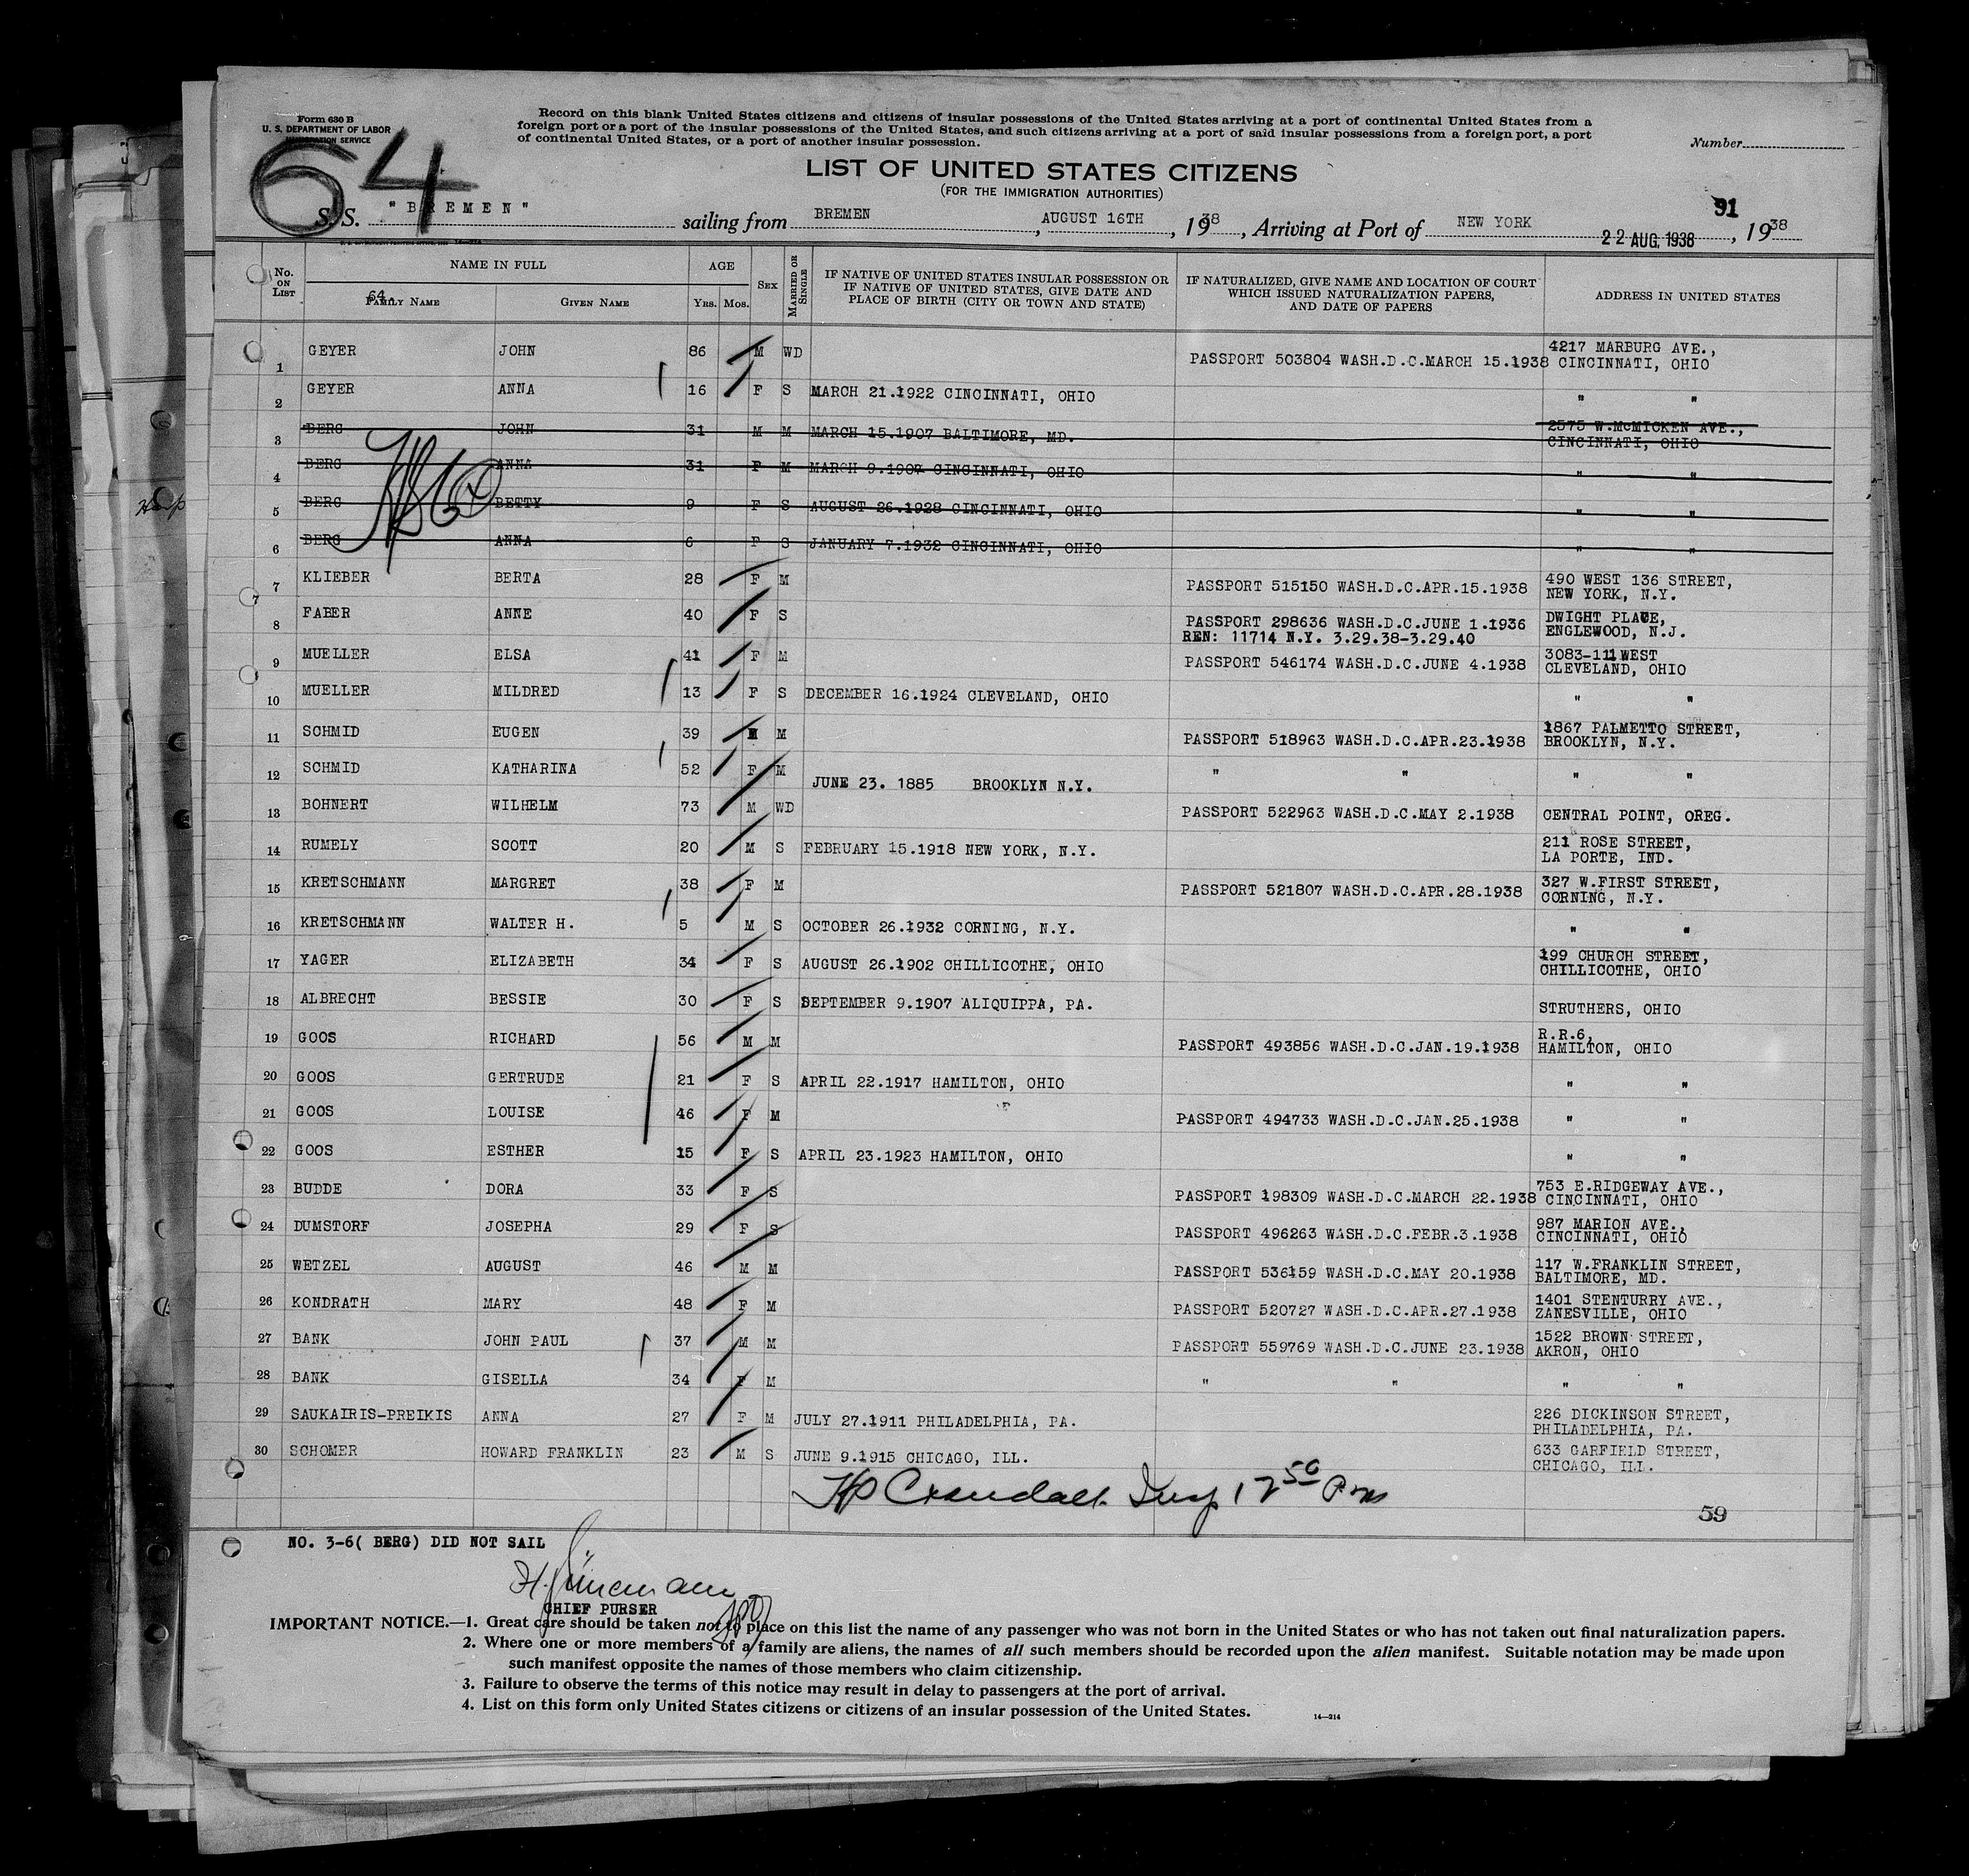 Form 630 B
U. S. DEPARTMENT OF LABOR
IMMIGRATION SERVICE
64
Record on this blank United States citizens and citizens of insular possessions of the United States arriving at a port of continental United States from a
foreign port or a port of the insular possessions of the United States, and such citizens arriving at a port of said insular possessions from a foreign port, a port
of continental United States, or a port of another insular possession.
Number
LIST OF UNITED STATES CITIZENS
(FOR THE IMMIGRATION AUTHORITIES)
91
S. S. "BREMEN" sailing from BREMEN, AUGUST 16TH, 1938, Arriving at Port of NEW YORK 22 AUG. 1938, 1938
No. ON LIST NAME IN FULL AGE SEX MARRIED OR SINGLE IF NATIVE OF UNITED STATES INSULAR POSSESSION OR IF NATIVE OF UNITED STATES, GIVE DATE AND PLACE OF BIRTH (CITY OR TOWN AND STATE) IF NATURALIZED, GIVE NAME AND LOCATION OF COURT WHICH ISSUED NATURALIZATION PAPERS, AND DATE OF PAPERS ADDRESS IN UNITED STATES
64 FAMILY NAME GIVEN NAME Yrs. Mos.
1 GEYER JOHN 86 M WD PASSPORT 503804 WASH.D.C.MARCH 15.1938 4217 MARBURG AVE., CINCINNATI, OHIO
2 GEYER ANNA 16 F S MARCH 21.1922 CINCINNATI, OHIO " "
3 BERG JOHN 31 M M MARCH 15.1907 BALTIMORE, MD. 2575 W.McMICKEN AVE., CINCINNATI, OHIO
4 BERG ANNA 31 F M MARCH 9.1907 CINCINNATI, OHIO " "
5 BERG BETTY 9 F S AUGUST 26.1928 CINCINNATI, OHIO " "
6 BERG ANNA 6 F S JANUARY 7.1932 CINCINNATI, OHIO " "
7 KLIEBER BERTA 28 F M PASSPORT 515150 WASH.D.C.APR.15.1938 490 WEST 136 STREET, NEW YORK, N.Y.
7
8 FABER ANNE 40 F S PASSPORT 298636 WASH.D.C.JUNE 1.1936 REN: 11714 N.Y. 3.29.38-3.29.40 DWIGHT PLACE, ENGLEWOOD, N.J.
9 MUELLER ELSA 41 F M PASSPORT 546174 WASH.D.C.JUNE 4.1938 3083-111 WEST CLEVELAND, OHIO
10 MUELLER MILDRED 13 F S DECEMBER 16.1924 CLEVELAND, OHIO " "
11 SCHMID EUGEN 39 M M PASSPORT 518963 WASH.D.C.APR.23.1938 1867 PALMETTO STREET, BROOKLYN, N.Y.
12 SCHMID KATHARINA 52 F M JUNE 23. 1885 BROOKLYN N.Y. " " " "
13 BOHNERT WILHELM 73 M WD PASSPORT 522963 WASH.D.C.MAY 2.1938 CENTRAL POINT, OREG.
14 RUMELY SCOTT 20 M S FEBRUARY 15.1918 NEW YORK, N.Y. 211 ROSE STREET, LA PORTE, IND.
15 KRETSCHMANN MARGRET 38 F M PASSPORT 521807 WASH.D.C.APR.28.1938 327 W.FIRST STREET, CORNING, N.Y.
16 KRETSCHMANN WALTER H. 5 M S OCTOBER 26.1932 CORNING, N.Y. " "
17 YAGER ELIZABETH 34 F S AUGUST 26.1902 CHILLICOTHE, OHIO 199 CHURCH STREET, CHILLICOTHE, OHIO
18 ALBRECHT BESSIE 30 F S SEPTEMBER 9.1907 ALIQUIPPA, PA. STRUTHERS, OHIO
19 GOOS RICHARD 56 M M PASSPORT 493856 WASH.D.C.JAN.19.1938 R.R.6, HAMILTON, OHIO
20 GOOS GERTRUDE 21 F S APRIL 22.1917 HAMILTON, OHIO " "
21 GOOS LOUISE 46 F M PASSPORT 494733 WASH.D.C.JAN.25.1938 " "
22 GOOS ESTHER 15 F S APRIL 23.1923 HAMILTON, OHIO " "
23 BUDDE DORA 33 F S PASSPORT 198309 WASH.D.C.MARCH 22.1938 753 E.RIDGEWAY AVE., CINCINNATI, OHIO
24 DUMSTORF JOSEPHA 29 F S PASSPORT 496263 WASH.D.C.FEBR.3.1938 987 MARION AVE., CINCINNATI, OHIO
25 WETZEL AUGUST 46 M M PASSPORT 536159 WASH.D.C.MAY 20.1938 117 W.FRANKLIN STREET, BALTIMORE, MD.
26 KONDRATH MARY 48 F M PASSPORT 520727 WASH.D.C.APR.27.1938 1401 STENTURRY AVE., ZANESVILLE, OHIO
27 BANK JOHN PAUL 37 M M PASSPORT 559769 WASH.D.C.JUNE 23.1938 1522 BROWN STREET, AKRON, OHIO
28 BANK GISELLA 34 F M " " " "
29 SAUKAIRIS-PREIKIS ANNA 27 F M JULY 27.1911 PHILADELPHIA, PA. 226 DICKINSON STREET, PHILADELPHIA, PA.
30 SCHOMER HOWARD FRANKLIN 23 M S JUNE 9.1915 CHICAGO, ILL. 633 GARFIELD STREET, CHICAGO, ILL.
HP Crandall Insp 12 50 Pm
59
NO. 3-6( BERG) DID NOT SAIL
CHIEF PURSER
IMPORTANT NOTICE.—1. Great care should be taken not to place on this list the name of any passenger who was not born in the United States or who has not taken out final naturalization papers.
2. Where one or more members of a family are aliens, the names of all such members should be recorded upon the alien manifest. Suitable notation may be made upon
such manifest opposite the names of those members who claim citizenship.
3. Failure to observe the terms of this notice may result in delay to passengers at the port of arrival.
4. List on this form only United States citizens or citizens of an insular possession of the United States.
14—214